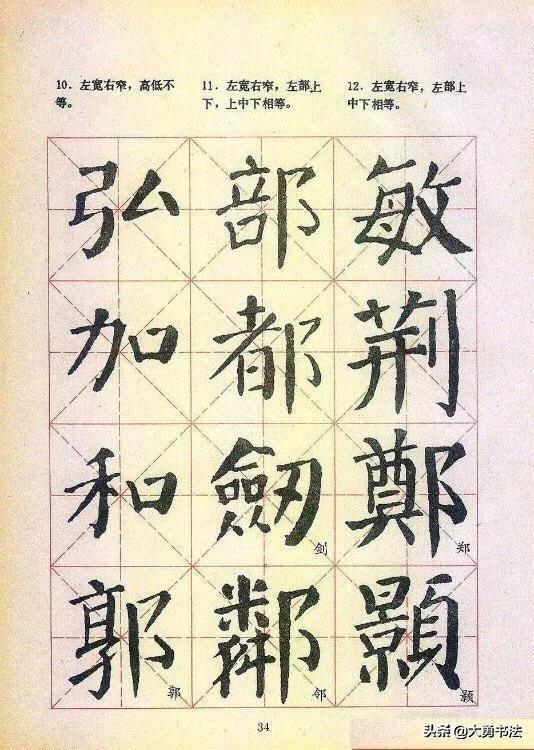 10．左宽右窄，高低不
等。
11．左宽右窄，左部上
下，上中下相等。
12．左宽右窄，左部上
中下相等。
弘 部 敏
加 都 荆
和 劒 鄭
剑 郑
郭 鄰 顥
郭 邻 颢
34
头条 @大勇书法